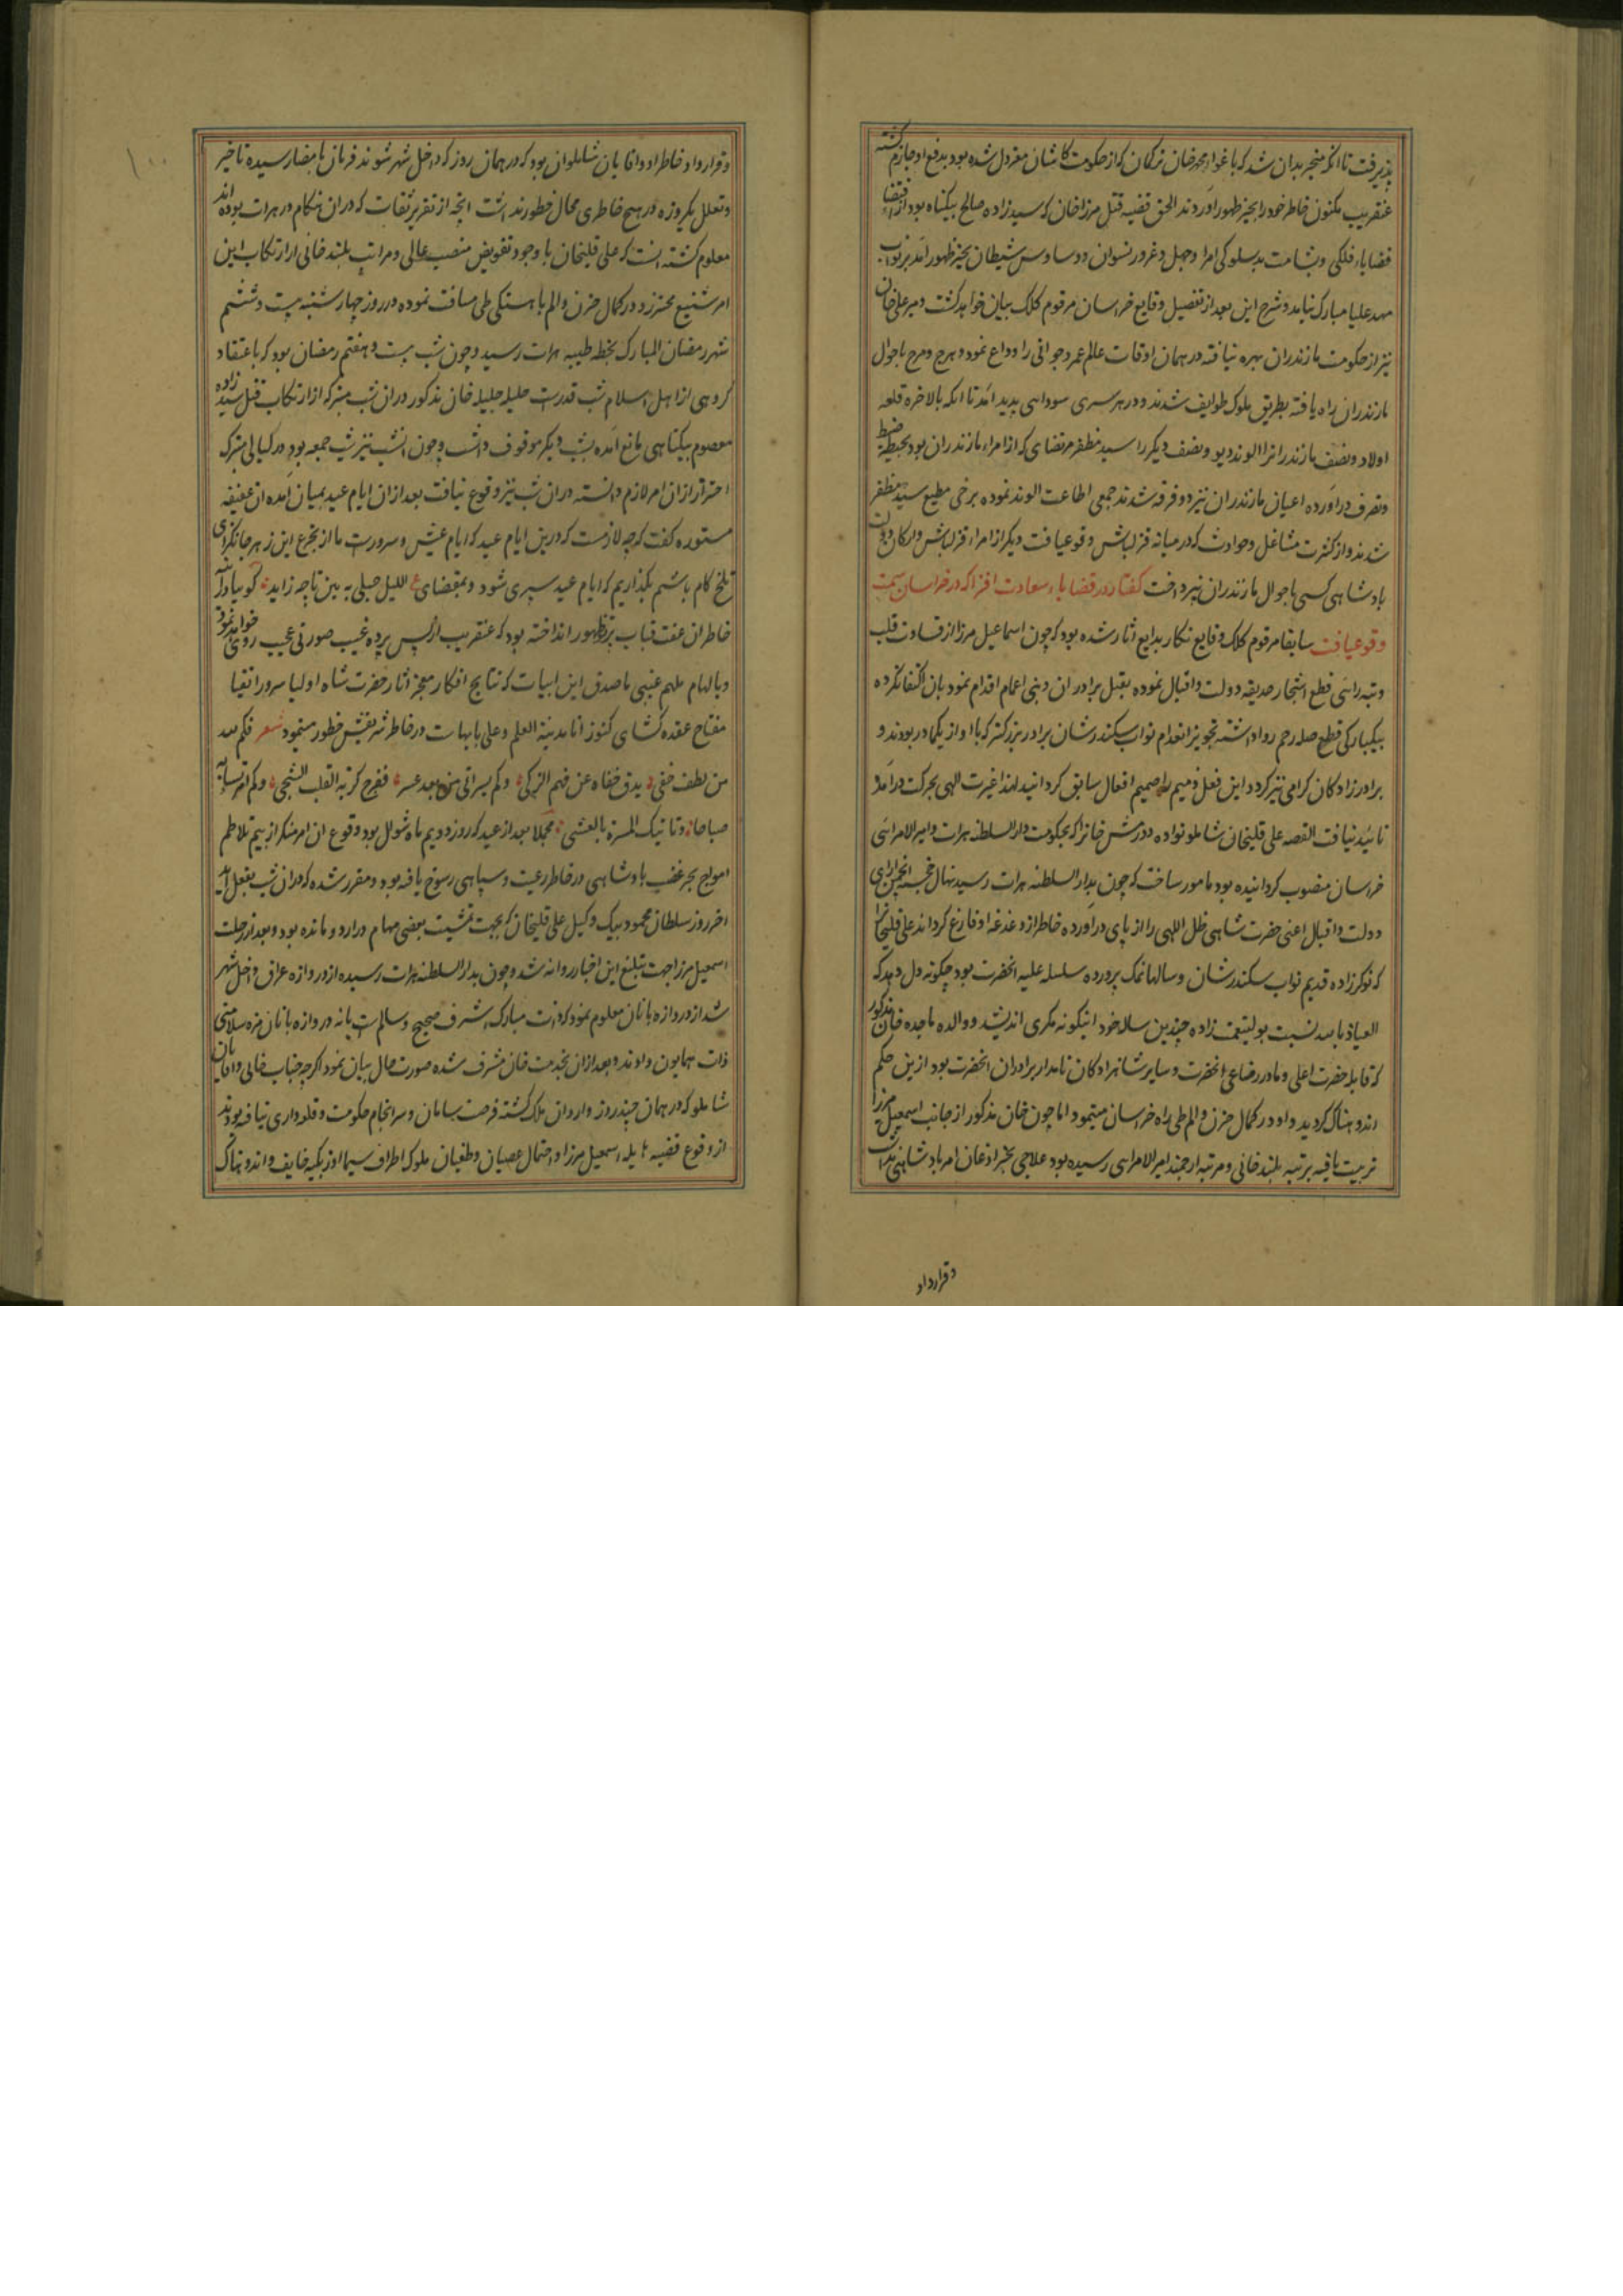 پذیرفت تا آنکه منجر بدان شد که باغواء محمد خان ترکمان که از حکومت کاشان معزول شده بود بدفع او جازم گشته
عنقریب مکنون خاطر خود را بحیز ظهور آوردند الحق قضیه قتل میرزا خان که سیدزاده صالح بیگناه بود از اقتضاء
قضایاء فلکی و بشامت بدسلوکی امرا و جهل و غرور نسوان و وساوس شیطان بحیز ظهور آمد بر نواب
مهد علیا مبارک نیامد و شرح این بعد از تفصیل وقایع خراسان مرقوم کلک بیان خواهد گشت و میر علی خان
نیز از حکومت مازندران بهره نیافته در همان اوقات عالم عمر و جوانی را وداع نمود و هرج و مرج باحوال
مازندران راه یافته بطریق ملوک طوایف شدند و در هر سری سودایی پدید آمد تا آنکه بالاخره قلعه
اولاد و نصف مازندران را الوند دیو و نصف دیگر را سید مظفر مرتضای که از امراء مازندران بود بحیطه ضبط
و تصرف درآورده اعیان مازندران نیز دو فرقه شدند جمعی اطاعت الوند نموده برخی مطیع سید مظفر
شدند و از کثرت مشاغل و حوادث که در میانه قزلباش وقوع یافت دیگر از امراء قزلباش و ارکان دولت
پادشاهی کسی باحوال مازندران نپرداخت گفتار در قضایاء سعادت افزا که در خراسان سمت
وقوع یافت سابقا مرقوم کلک وقایع نگار بدایع آثار شده بود که چون اسماعیل میرزا از قساوت قلب
و تبه رائی قطع اشجار حدیقه دولت و اقبال نموده بقتل برادران و بنی اعمام اقدام نمود بان اکتفا نکرده
بیکبارگی قطع صله رحم روا داشته تجویز انعدام نواب سکندر شان برادر بزرگتر که با او از یکمادر بودند و
برادرزادگان گرامی نیز کرد و این فعل ذمیم را ضمیم افعال سابق گردانید لهذا غیرت الهی بحرکت درآمد و
تائید نیافت القصه علی قلیخان شاملو نواده دورمش خانرا که بحکومت دار السلطنه هرات و امیر الامرائی
خراسان منصوب گردانیده بود مامور ساخت که چون بدار السلطنه هرات رسید نهال خجسته انجمن آرای
دولت و اقبال اعنی حضرت شاهی ظل اللهی را از پای درآورده خاطر از دغدغه او فارغ گرداند علی قلیخانرا
که نوکرزاده قدیم نواب سکندر شان و سالها نمک پرورده سلسله علیه آنحضرت بود چگونه دل دهد که
العیاذ بالله نسبت بولینعمت زاده چندین ساله خود اینگونه مکری اندیشد و والده ماجده خان مذکور
که قابله حضرت اعلی و مادر رضاعی آنحضرت و سایر شاهزادگان نامدار برادران آنحضرت بود ازین حکم
اندوهناک گردید و او در کمال حزن و الم طی راه خراسان مینمود اما چون خان مذکور از جانب اسمعیل میرزا
تربیت یافته برتبه بلند خانی و مرتبه ارجمند امیر الامرایی رسیده بود علاجی بجز اذعان امر پادشاهی نداشت
وقرارداد
وقرارداد خاطر او و آقایان شاملو آن بود که در همان روز که داخل شهر شوند فرمان بامضا رسیده تاخیر
و تعلل یکروزه در هیچ خاطری مجال خطور نداشت آنچه از تقریر ثقات که در آن هنگام در هرات بوده اند
معلوم گشته آنست که علی قلیخان با وجود تفویض منصب عالی و مراتب بلند خانی از ارتکاب این
امر شنیع محترز و در کمال حزن و الم باهستگی طی مسافت نموده در روز چهارشنبه بیست و ششم
شهر رمضان المبارک بخطه طیبه هرات رسید و چون شب بیست و هفتم رمضان بود که باعتقاد
گروهی از اهل اسلام شب قدرست حلیله جلیله خان مذکور در آن شب متبرکه از ارتکاب قتل سیدزاده
معصوم بیگناهی مانع آمده بشب دیگر موقوف داشت و چون آنشب نیز شب جمعه بود در لیالی متبرکه
احتراز از آن امر لازم دانسته در آن شب نیز وقوع نیافت بعد از آن ایام عید بمیان آمده آن عفیفه
مستوره گفت که چه لازمست که درین ایام عید که ایام عیش و سرورست ما از تجرع این زهر جانگزای
تلخ کام باشیم بگذاریم که ایام عید سپری شود و بمقتضای ع اللیل حبلی به بین تا چه زاید گویا در آینه
خاطر آن عفت قباب پرتو ظهور انداخته بود که عنقریب از پس پرده غیب صورتی عجیب روی خواهد نمود
و بالهام ملهم غیبی ماصدق این ابیات که نتایج افکار معجز آثار حضرت شاه اولیا سرور اتقیا
مفتاح عقده گشای کنوز انا مدینة العلم و علی بابهاست در خاطر شریفش خطور مینمود شعر فکم لله
من لطف خفی یدق خفاه عن فهم الزکی وکم یسر اتی من بعد عسر ففرج کربة القلب الشجی وکم امر تساء به
صباحا وتاتیک المسرة بالعشی مجملا بعد از عید که روز دویم ماه شوال بود وقوع آن امر منکر از بیم تلاطم
امواج بحر غضب پادشاهی در خاطر رعیت و سپاهی رسوخ یافته بود و مقرر شده که در آن شب بفعل آید
آخر روز سلطان محمود بیک وکیل علی قلیخان که بجهت تمشیت بعضی مهام در اردو مانده بود و بعد از رحلت
اسمعیل میرزا جهت تبلیغ این اخبار روانه شد و چون بدار السلطنه هرات رسیده از دروازه عراق داخل شهر
شد از دروازه بانان معلوم نمود که ذات مبارک اشرف صحیح و سالمست یا نه دروازه بانان مژده سلامتی
ذات همایون دادند و بعد از آن بخدمت خان مشرف شده صورت حال بیان نمود اگرچه جناب خانی و آقایان
شاملو که در همان چند روز وارد آن ملک گشته فرصت سامان و سرانجام حکومت و قلعه داری نیافته بودند
از وقوع قضیه هایله اسمعیل میرزا و احتمال عصیان و طغیان ملوک اطراف سیما اوزبکیه خایف و اندوهناک